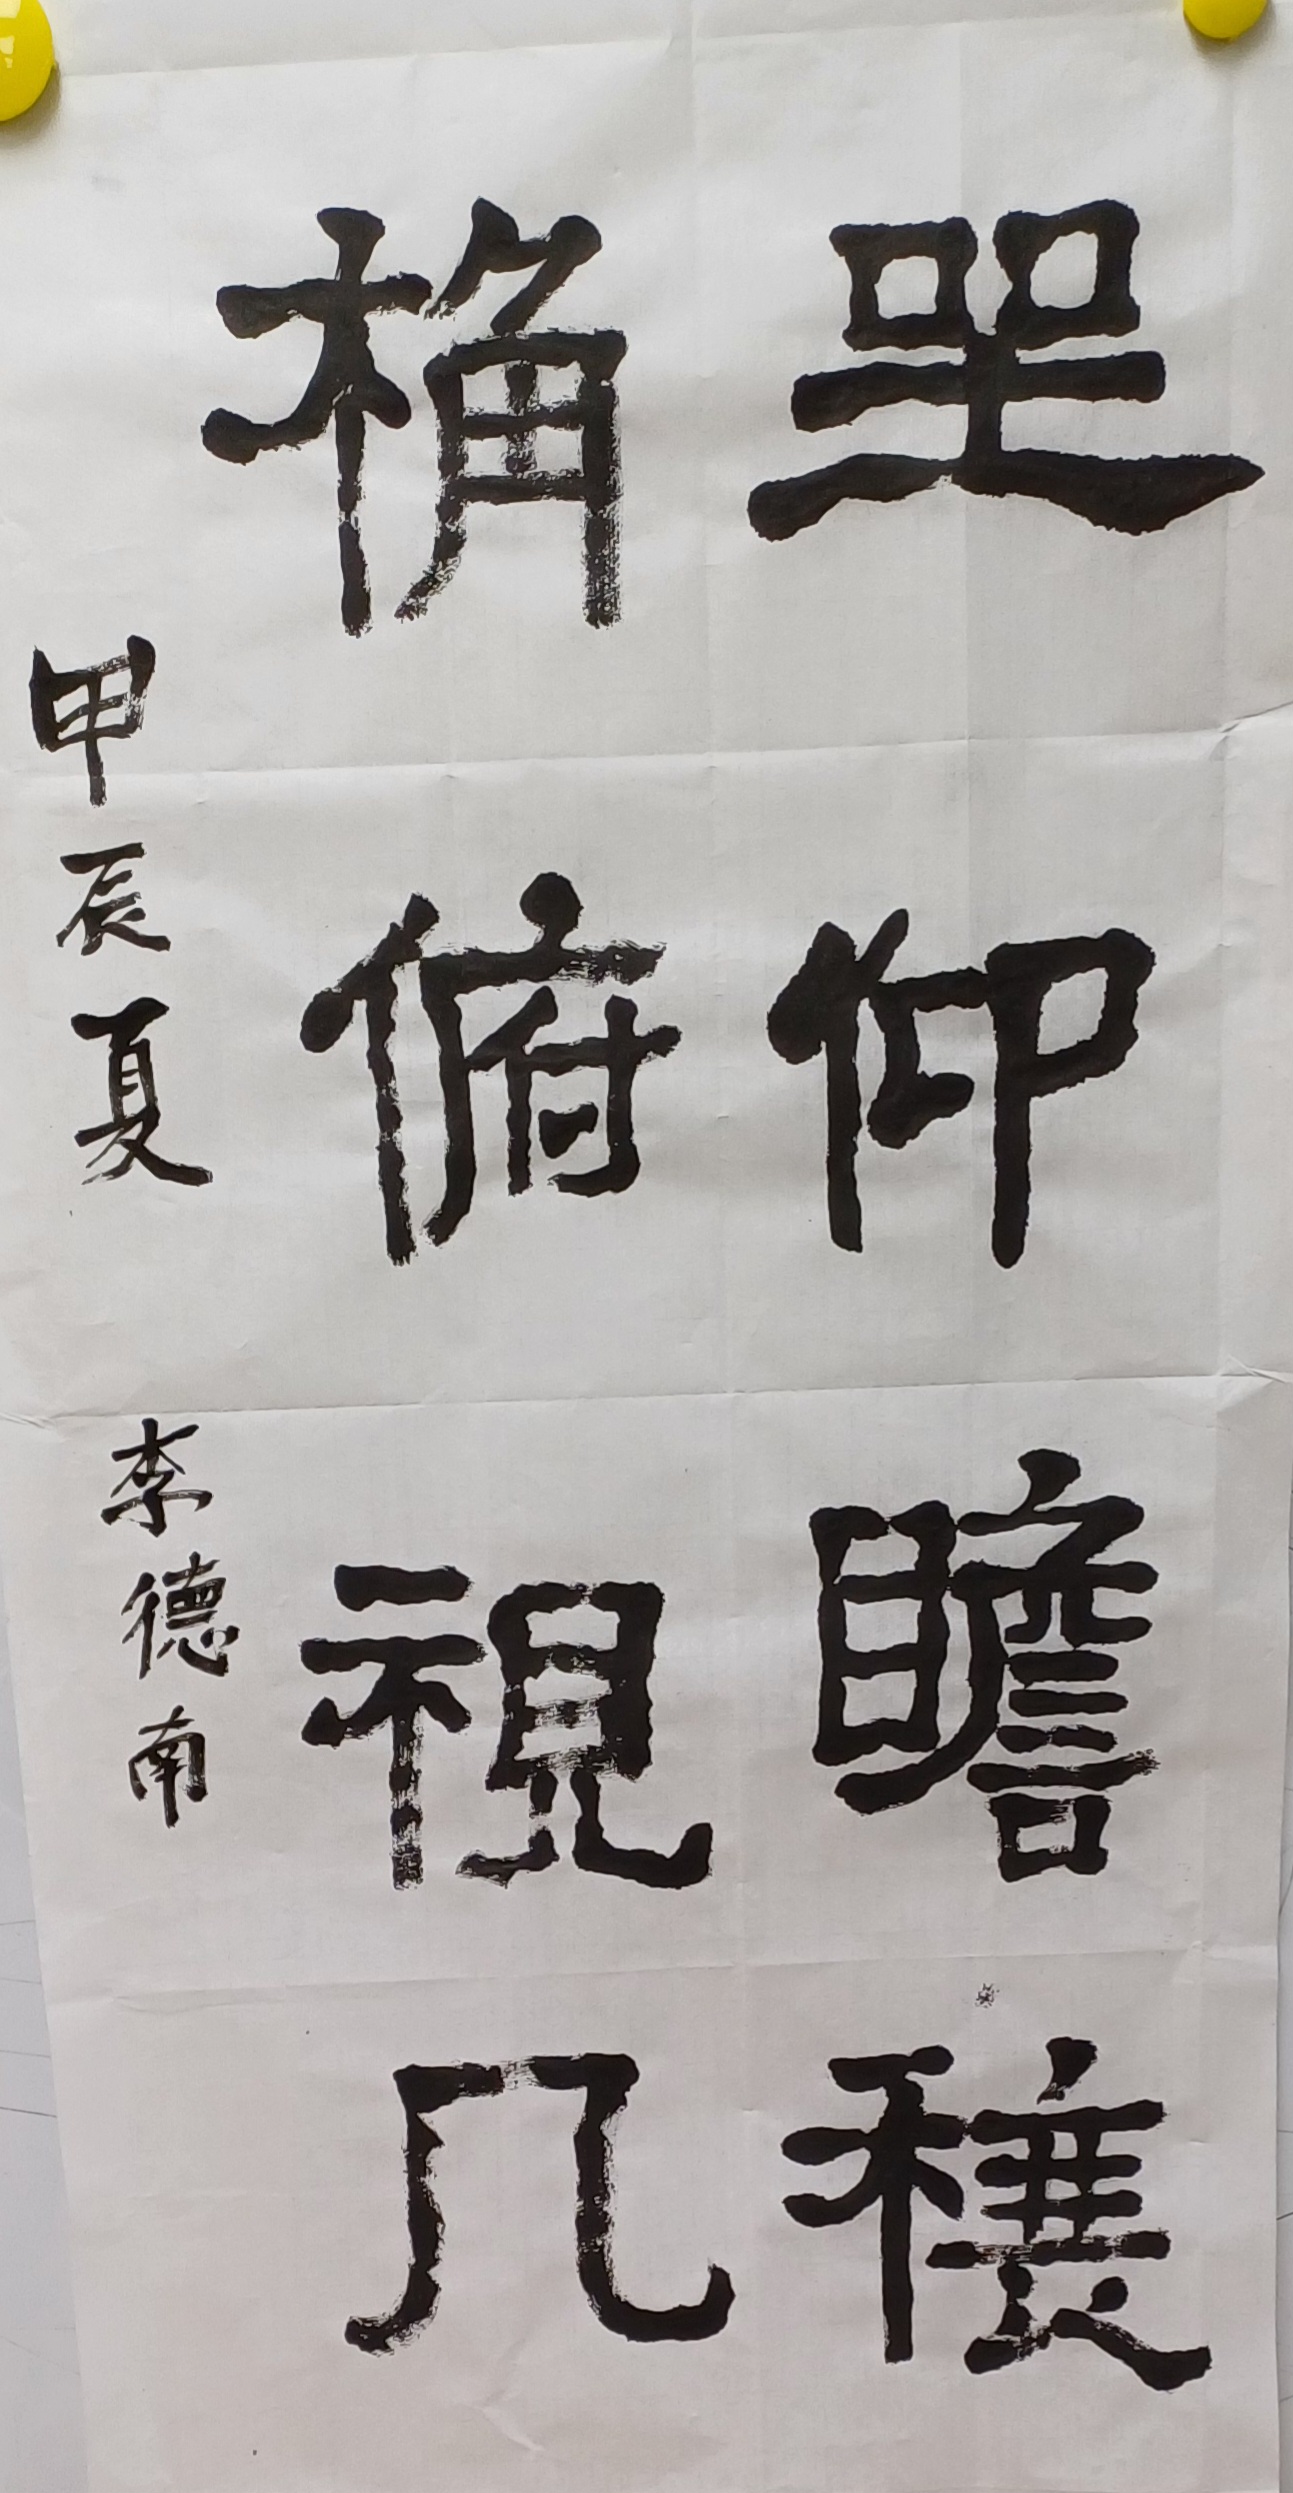 坐仰瞻榱
桷俯視几
甲辰夏 李德南